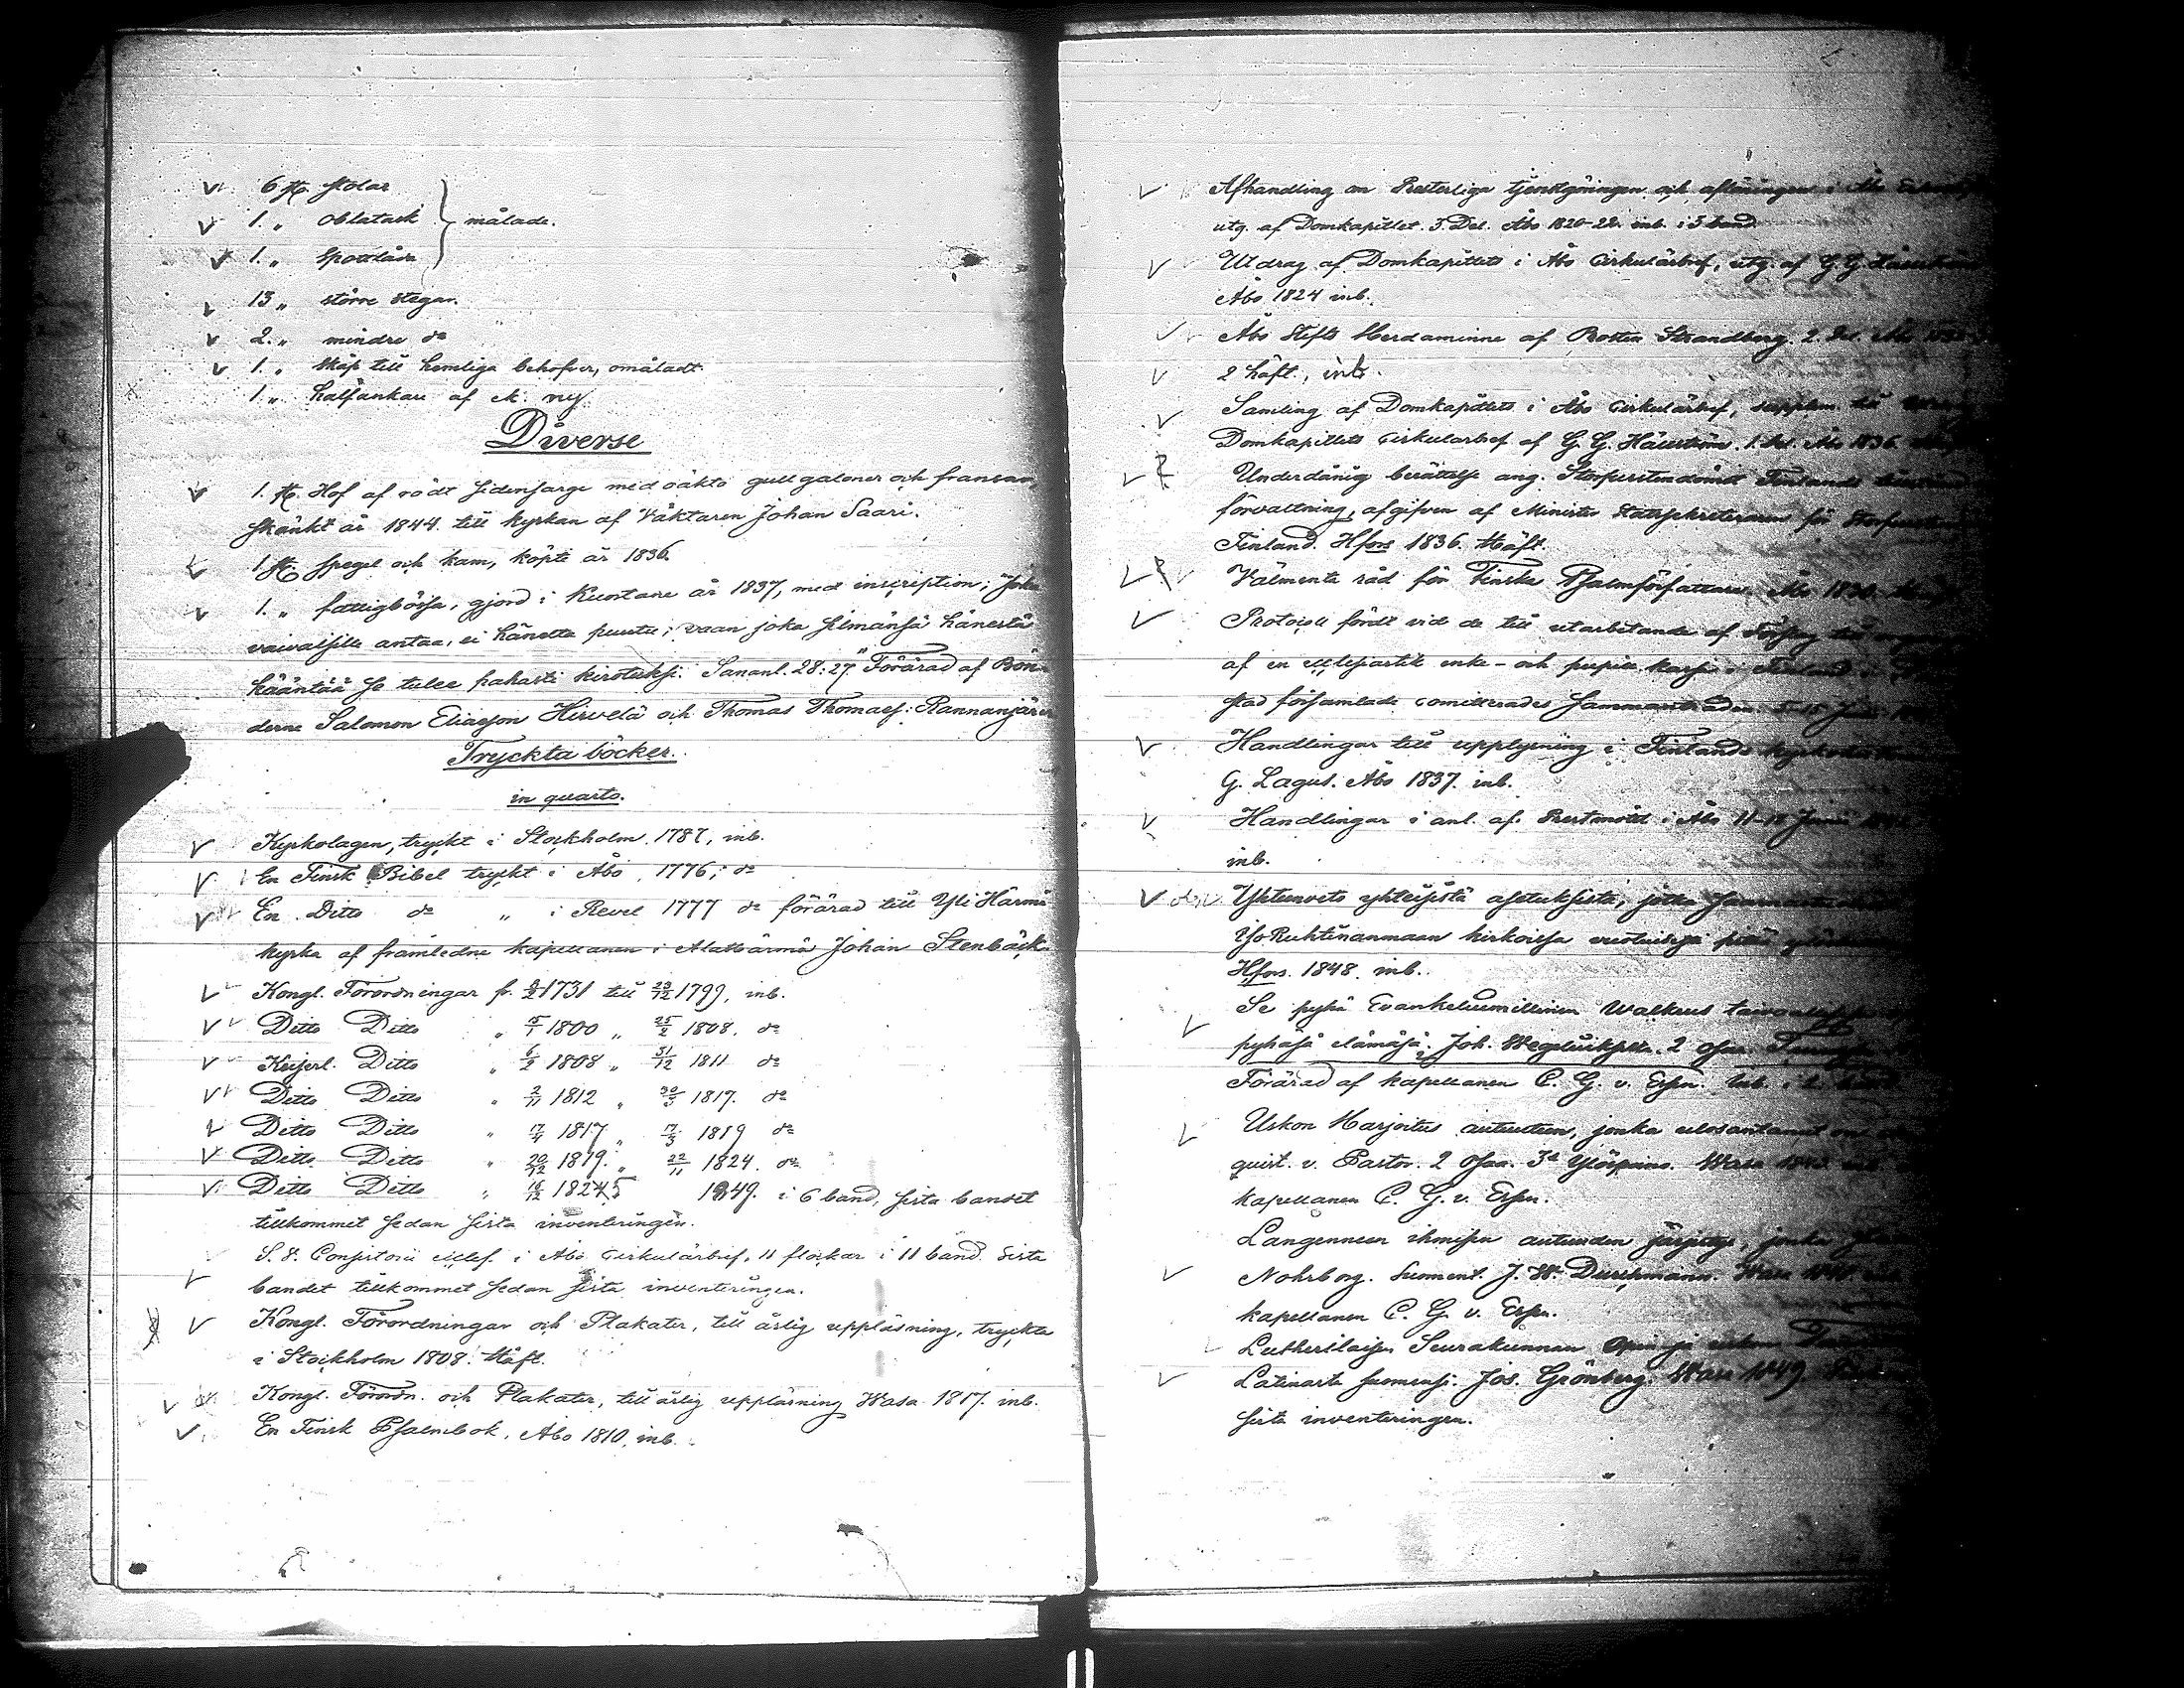 6 st. stolar
1. „ oblatask } målade.
1. „ spottlåda
13 „ större stegar.
2. „ mindre do
1. „ skåp till hemliga behofver, omåladt.
1 „ halfankare af ek. ny
Diverse
1. st. Hof af rödt sidensarge med oäkta gullgaloner och fransar,
skänkt år 1844 till kyrkan af Väktaren Johan Saari.
1 st. spegel och kam, köpte år 1836.
1. „ fattigbössa, gjord i Kuortane år 1837, med inscription; Joka
vaivaiselle antaa, ei häneltä puutu; vaan joka silmänsä hänestä
kääntää se tulee pahasti kirotuksi. Sananl. 28:27." Förärad af Bön-
derne Salomon Eliasson Hirvelä och Thomas Thomass: Rannanjärvi
Tryckta böcker.
in quarto.
Kyrkolagen, tryckt i Stockholm. 1787, inb.
En Finsk Bibel tryckt i Åbo 1776, do
En Ditto do „ i Revel 1777 do förärad till Yli Härmä
kyrka af framledne kapellanen i Alahärmä Johan Stenbäck
Kongl. Förordningar fr. 9/2 1731 till 23/12 1799, inb.
Ditto Ditto „ 15/1 1800 „ 25/2 1808. do
Kejserl. Ditto „ 6/2 1808 „ 31/12 1811 do
Ditto Ditto „ 2/11 1812 „ 30/3 1817. do
Ditto Ditto „ 17/4 1817 „ 17/3 1819 do
Ditto Ditto „ 20/12 1819. „ 22/11 1824. do
Ditto Ditto „ 16/12 1825 1849. i 6 band, sista bandet
tillkommet sedan sista inventeringen.
S. d. Consistorii eccles. i Åbo Cirkulärbref, 11 flockar i 11 band. Sista
bandet tillkommet sedan sista inventeringen.
Kongl. Förordningar och Plakater, till årlig uppläsning, tryckte
i Stockholm 1808. Häft.
Kongl. Förordn. och Plakater, till årlig uppläsning Wasa 1817. inb.
En Finsk Psalmbok, Åbo 1810, inb.
Afhandling om Presterliga tjenstgöringen och aflöningen i Åbo
utg. af Domkapitlet. 3. Del. Åbo 1820-22. inb. i 3 band
Utdrag af Domkapitlets i Åbo Cirkulärbref, utg. af G. G.
Åbo 1824 inb.
Åbo Stifts Herdaminne af Prosten Strandberg. 2. Del. Åbo
2 häft., inb.
Samling af Domkapitlets i Åbo Cirkulärbref, supplem. till
Domkapitlets Cirkulärbref af G. G. Hällström. 1. Del. Åbo 1836.
Underdånig berättelse ang. Storfurstendömet Finlands
förvaltning, afgifven af Minister Statssekreteraren för
Finland. Hfors 1836. Häft.
Välmenta råd för Finska Psalmförfattare. Åbo
Protocoll fördt vid de till utarbetande af förslag till
af en ecclesiastik enke- och pupill kassa i Finland i
stad församlade comitterades sammanträden
Handlingar till upplysning i Finlands kyrkohistoria
G. Lagus. Åbo 1837. inb.
Handlingar i anl. af Prestmötet i Åbo
inb.
Yhteenveto yhteisistä asetuksista, jotka
Iso Ruhtinanmaan kirkoissa
Hfors. 1848. inb.
Se pyhä Evankeliumillinen Walkeus
pyhässä elämässä. Joh. Wegeliukselta. 2 Osaa.
Förärad af kapellanen C. G. v. Essen. Inb. i 2 band
Uskon Harjoitus autuuteen, jonka ulosantanut on
quist. v. Pastor. 2 Osaa. 3a Ylöspano. Wasa
kapellanen C. G. v. Essen.
Langenneen ihmisen autuuden järjestys, jonka
Nohrborg. Suoment. J. W. Durchmann.
kapellanen C. G. v. Essen.
Lutherilaisen Seurakunnan Opin ja uskon
Latinasta suomensi. Jos. Grönberg. Wasa 1849.
sista inventeringen.